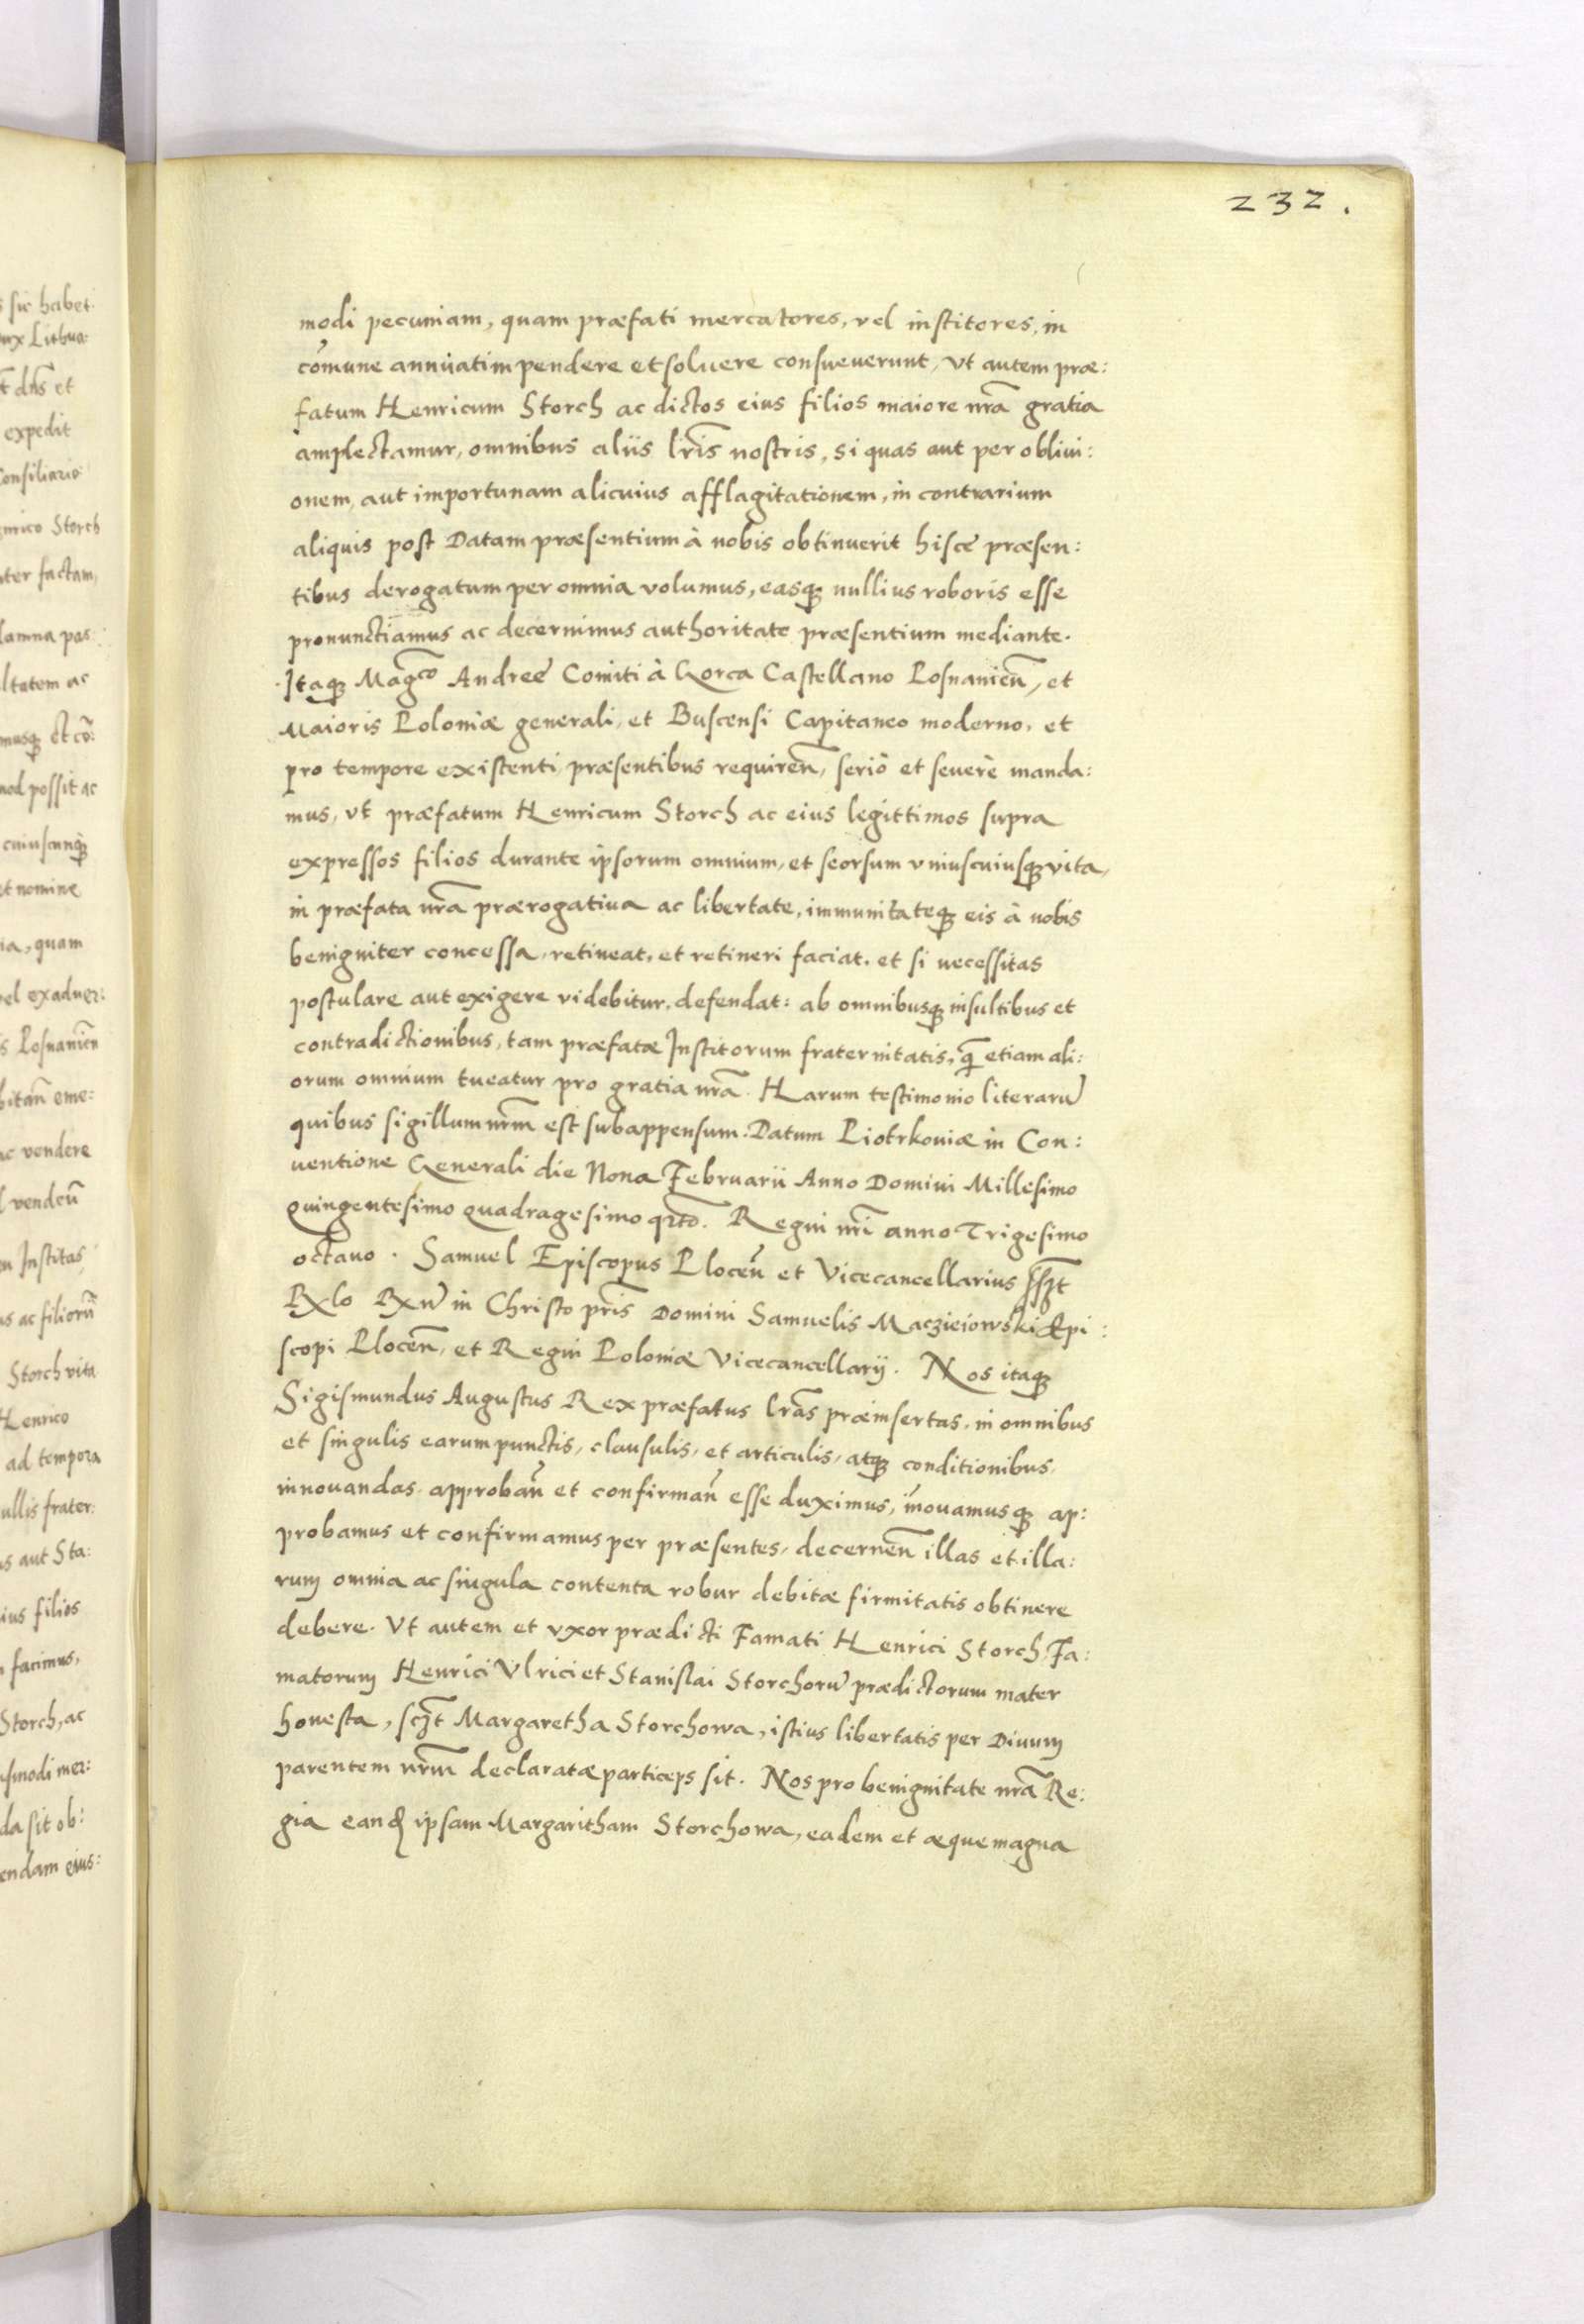 232.
modi pecuniam, quam præfati mercatores, vel institores, in
cõmune annuatim pendere et soluere consueuerunt, vt autem præ:
fatum Henricum Storch ac dictos eius filios maiore nr̃a gratia
amplectamur, omnibus aliis lr̃is nostris, si quas aut per obliui:
onem, aut importunam alicuius afflagitationem, in contrarium
aliquis post Datam præsentium à nobis obtinuerit hisce præsen:
tibus derogatum per omnia volumus, easq; nullius roboris esse
pronunctiamus ac decernimus authoritate præsentium mediante.
Itaq; Mag.co Andreę Comiti à Gorca Castellano Posnanien̄, et
Maioris Poloniæ generali, et Buscensi Capitaneo moderno, et
pro tempore existenti præsentibus requiren̄, seriò et seuerè manda:
mus, vt præfatum Henricum Storch ac eius legittimos supra
expressos filios durante ipsorum omnium, et seorsum vniuscuiusq; vita,
in præfata nr̃a prærogatiua ac libertate, immunitateq; eis à nobis
benigniter concessa, retineat, et retineri faciat, et si necessitas
postulare aut exigere videbitur, defendat: ab omnibusq; insultibus et
contradictionibus, tam præfatæ Institorum fraternitatis, q̃ etiam ali:
orum omnium tueatur pro gratia nr̃a. Harum testimonio literarũ
quibus sigillum nr̃m est subappensum. Datum Piotrkouiæ in Con:
uentione Generali die Nona Februarii Anno Domini Millesimo
quingentesimo quadragesimo qr̃to. Regni nr̃i anno Trigesimo
octauo. Samuel Episcopus Plocen̄ et Vicecancellarius sszt
Rxlo Rxũ in Christo pr̃is Domini Samuelis Maczieiowski Epi:
scopi Plocen̄, et Regni Poloniæ Vicecancellarij. Nos itaq;
Sigismundus Augustus Rex præfatus lr̃as præinsertas, in omnibus
et singulis earum punctis, clausulis, et articulis, atq; conditionibus,
innouandas approban̄ et confirman̄ esse duximus, ĩnouamusq; ap:
probamus et confirmamus per præsentes, decernen̄ illas et illa:
rum omnia ac singula contenta robur debitæ firmitatis obtinere
debere. Vt autem et vxor prædicti Famati Henrici Storch, Fa:
matorum Henrici Vlrici et Stanislai Storchorũ prædictorum mater
honesta, sczt Margaretha Storchowa, istius libertatis per Diuum
parentem nr̃m declaratæ particeps sit. Nos pro benignitate nr̃a Re:
gia eand; ipsam Margaritham Storchowa, eadem et æque magna